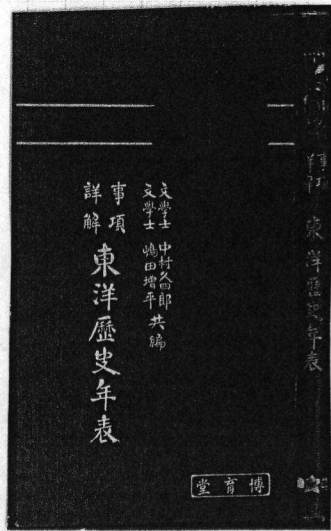 文學士 中村久四郎
文學士 嶋田增平 共編
事項
詳解
東洋歷史年表
堂育博
事項
詳解 東洋歷史年表